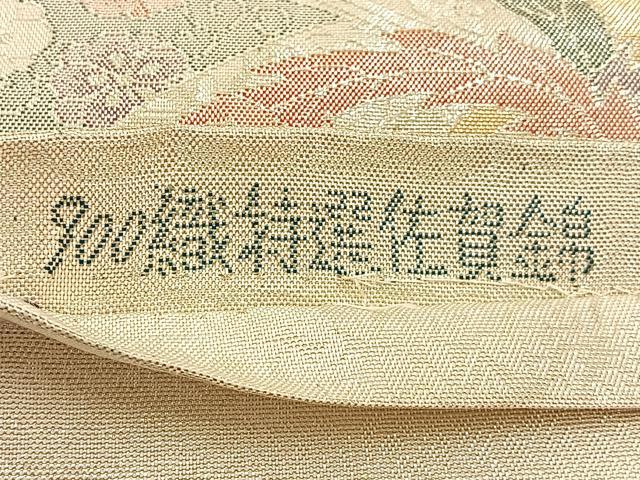 900織特選佐賀錦